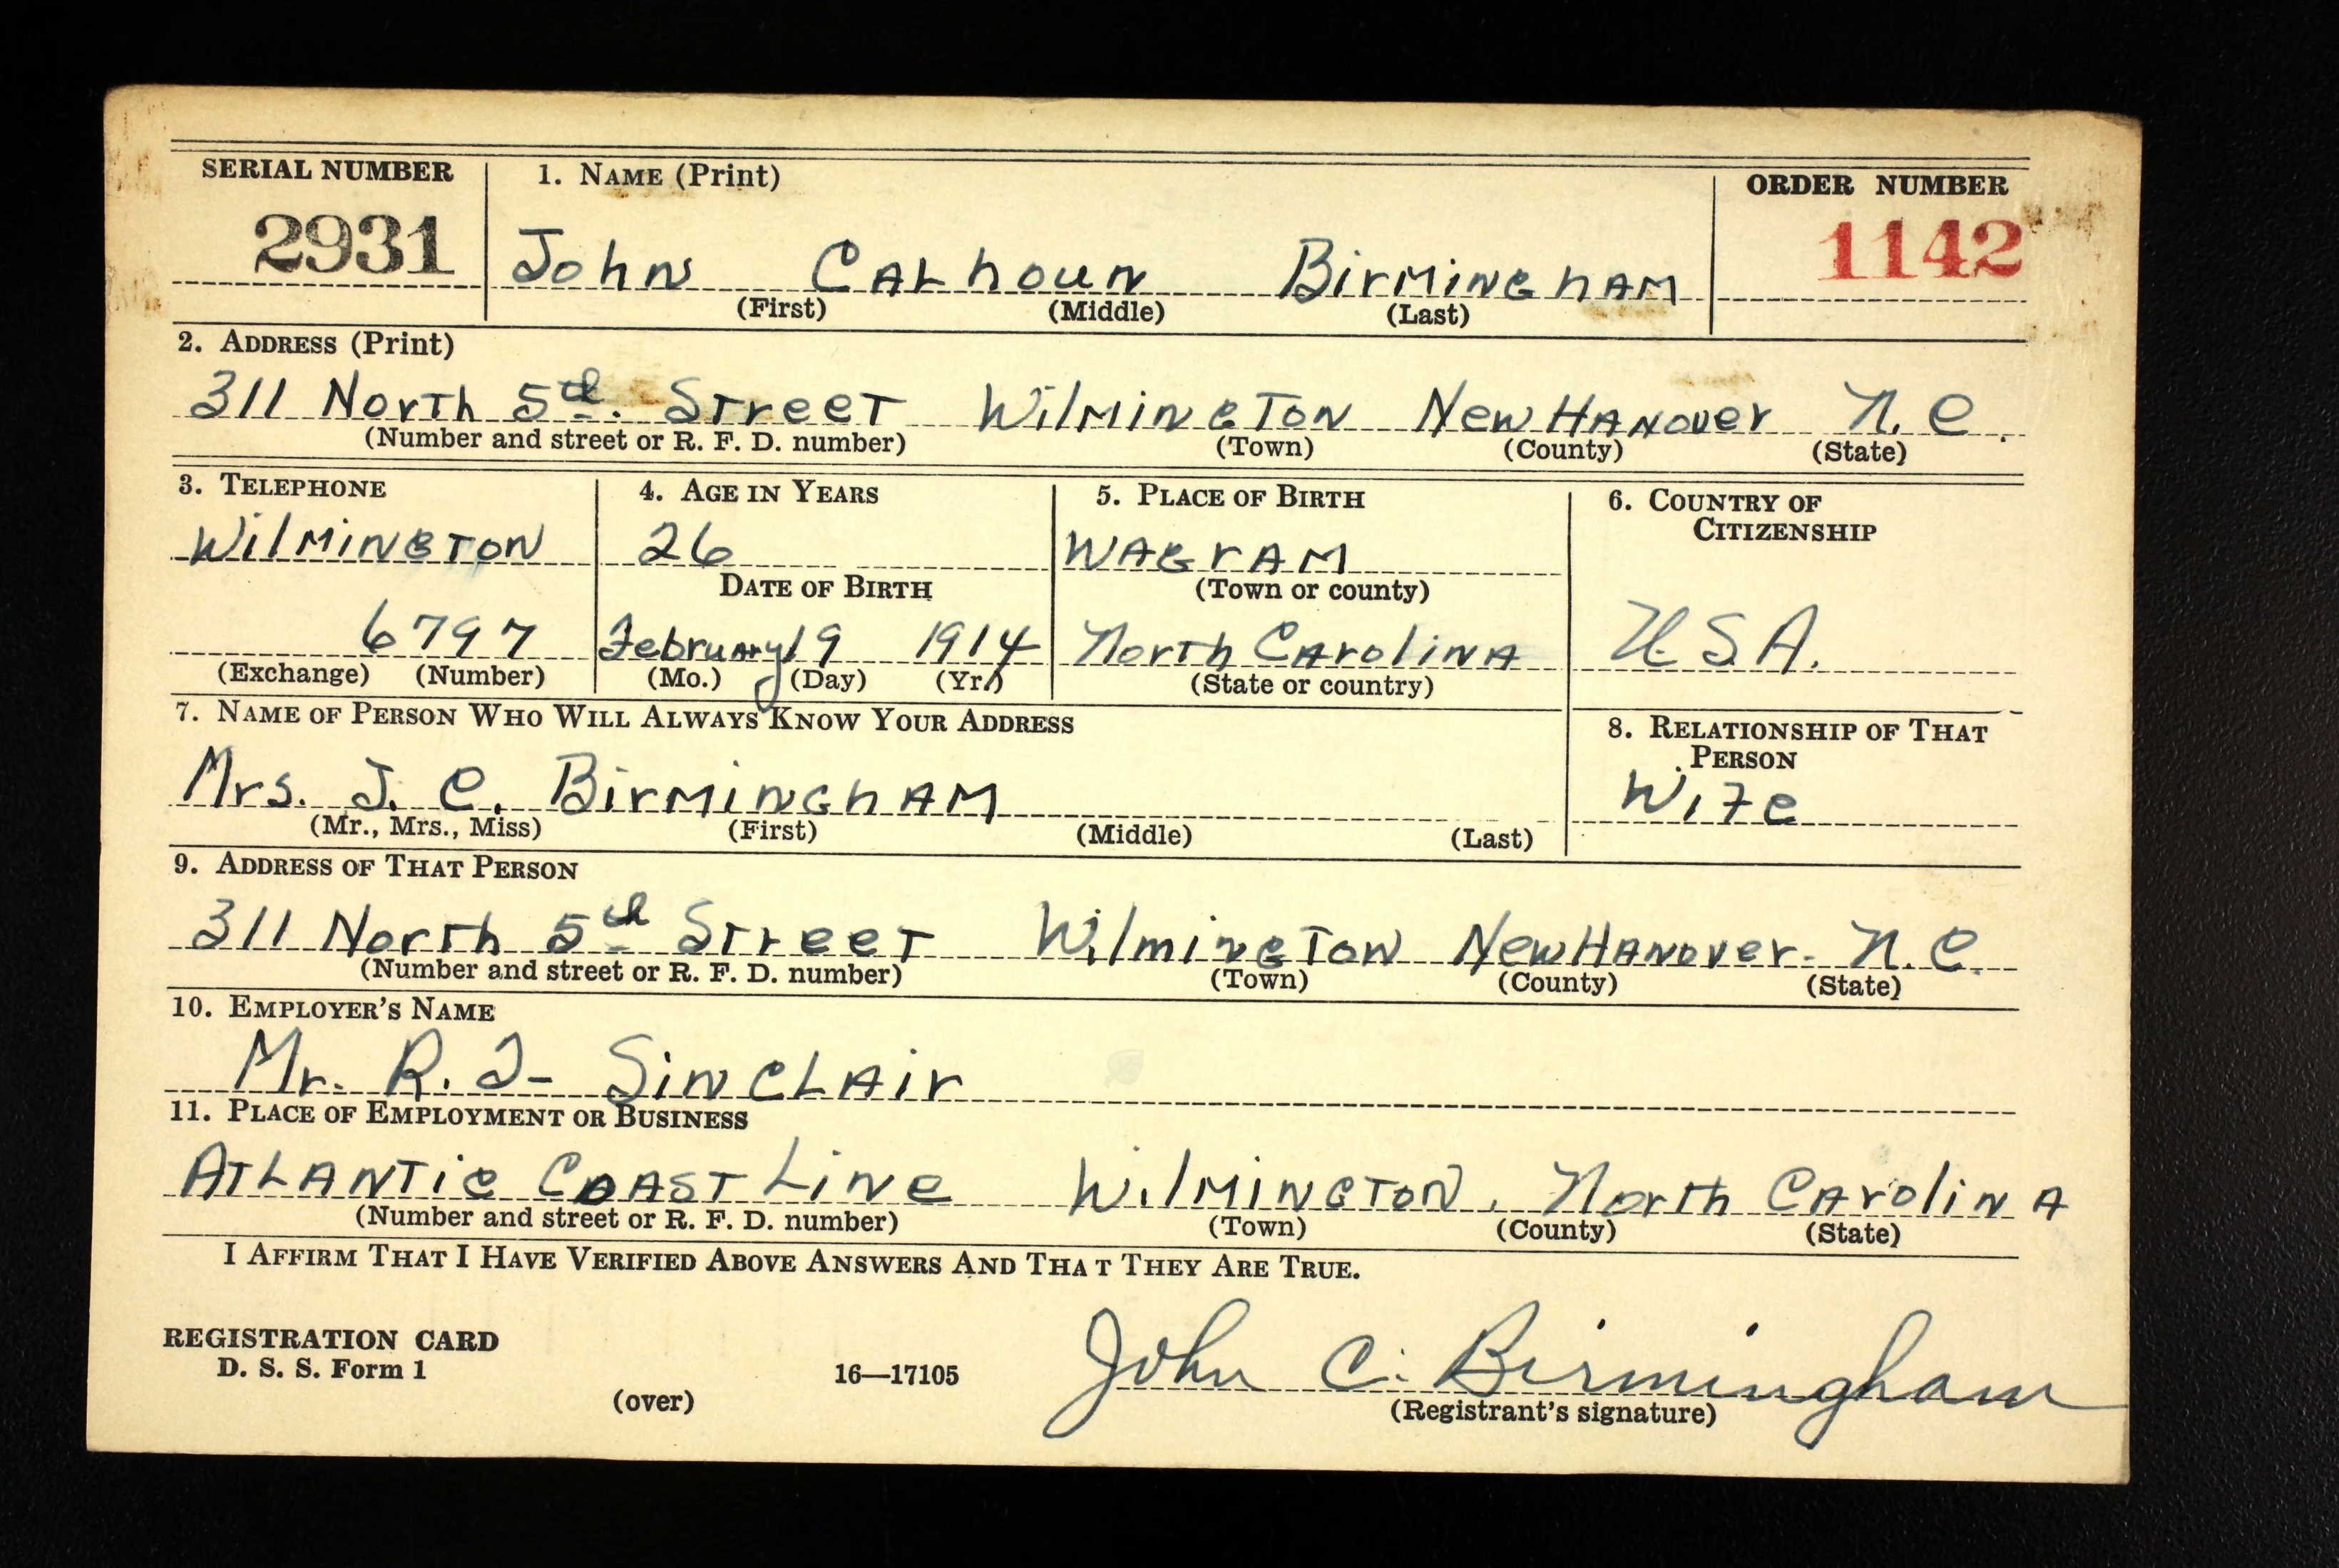 SERIAL NUMBER 1. NAME (Print) ORDER NUMBER
2931 John Calhoun Birmingham 1142
(First) (Middle) (Last)
2. ADDRESS (Print)
311 North 5th. Street Wilmington New Hanover N.C.
(Number and street or R. F. D. number) (Town) (County) (State)
3. TELEPHONE 4. AGE IN YEARS 5. PLACE OF BIRTH 6. COUNTRY OF
CITIZENSHIP
Wilmington 26 Wagram
DATE OF BIRTH (Town or county)
6797 February 19 1914 North Carolina U.S.A.
(Exchange) (Number) (Mo.) (Day) (Yr.) (State or country)
7. NAME OF PERSON WHO WILL ALWAYS KNOW YOUR ADDRESS 8. RELATIONSHIP OF THAT
PERSON
Mrs. J. C. Birmingham Wife
(Mr., Mrs., Miss) (First) (Middle) (Last)
9. ADDRESS OF THAT PERSON
311 North 5th Street Wilmington New Hanover. N.C.
(Number and street or R. F. D. number) (Town) (County) (State)
10. EMPLOYER'S NAME
Mr. R. Sinclair
11. PLACE OF EMPLOYMENT OR BUSINESS
Atlantic Coast Line Wilmington, North Carolina
(Number and street or R. F. D. number) (Town) (County) (State)
I AFFIRM THAT I HAVE VERIFIED ABOVE ANSWERS AND THA T THEY ARE TRUE.
REGISTRATION CARD
D. S. S. Form 1 16—17105 John C. Birmingham
(over) (Registrant's signature)